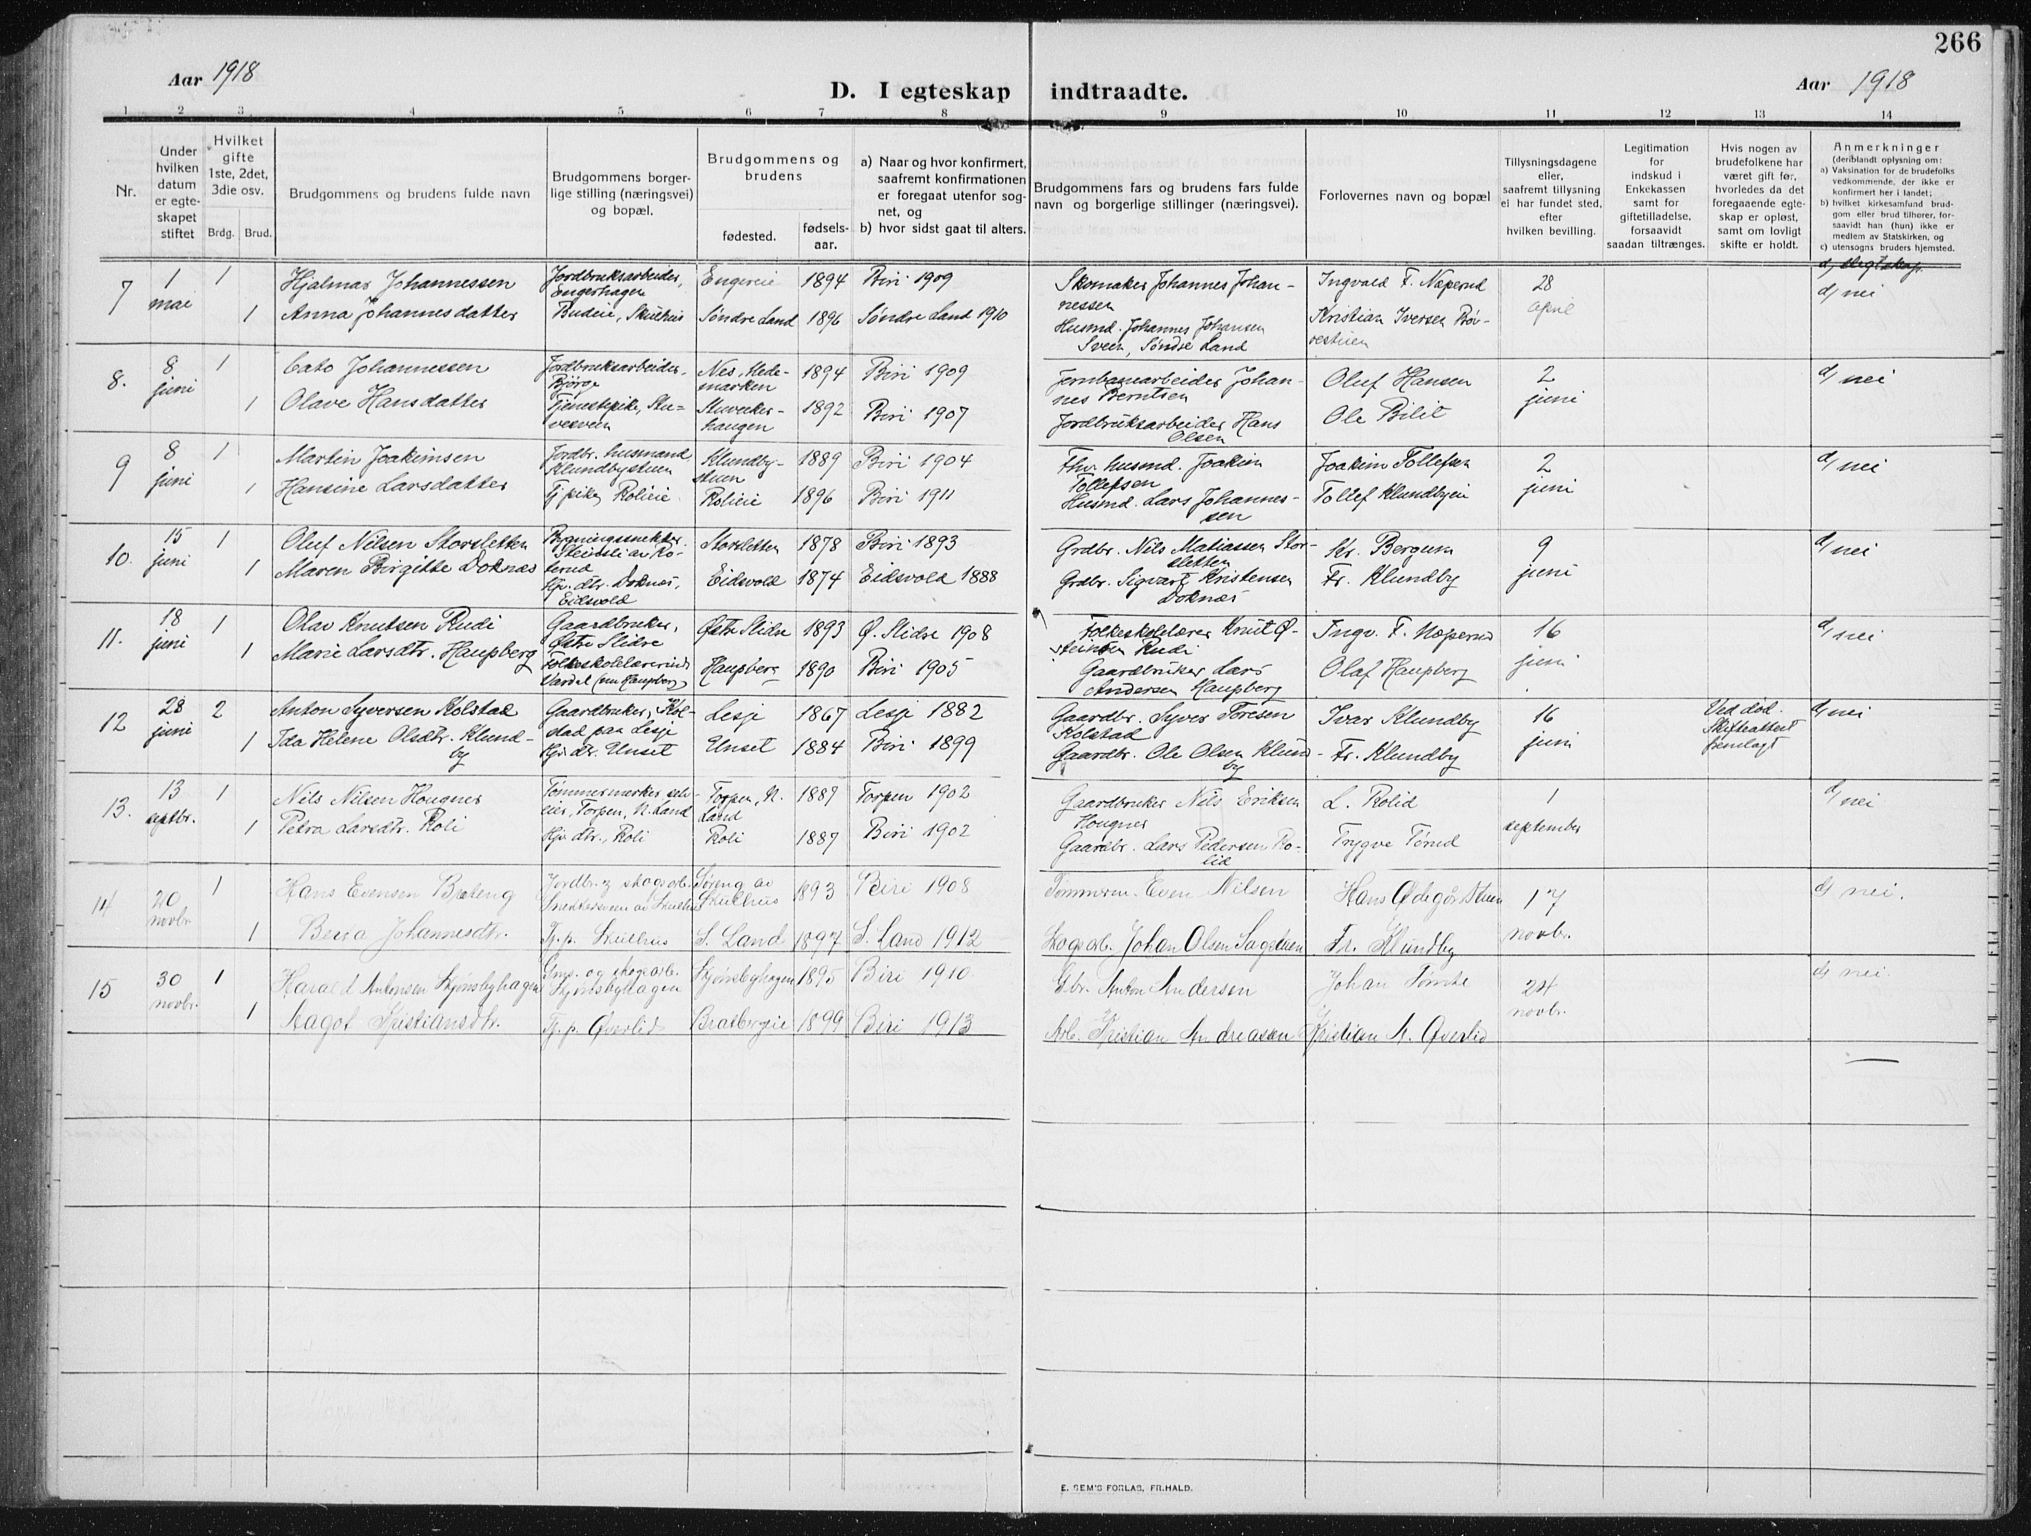 266
Aar 1918
D. I egteskap indtraadte.
Aar 1918
1 2 3 4 5 6 7 8 9 10 11 12 13 14
Nr.
Under hvilken datum er egteskapet stiftet
Hvilket gifte 1ste, 2det, 3die osv.
Brdg. Brud.
Brudgommens og brudens fulde navn
Brudgommens borgerlige stilling (næringsvei) og bopæl.
Brudgommens og brudens
fødested. fødselsaar.
a) Naar og hvor konfirmert, saafremt konfirmationen er foregaat utenfor sognet, og
b) hvor sidst gaat til alters.
Brudgommens fars og brudens fars fulde navn og borgerlige stillinger (næringsvei).
Forlovernes navn og bopæl
Tillysningsdagene eller, saafremt tillysning ei har fundet sted, efter hvilken bevilling.
Legitimation for indskud i Enkekassen samt for giftetilladelse, forsaavidt saadan tiltrænges.
Hvis nogen av brudefolkene har været gift før, hvorledes da det foregaaende egteskap er opløst, samt om lovligt skifte er holdt.
Anmerkninger
(deriblandt oplysning om:
a) Vaksination for de brudefolks vedkommende, der ikke er konfirmert her i landet;
b) hvilket kirkesamfund brudgom eller brud tilhører, forsaavidt han (hun) ikke er medlem av Statskirken, og
c) utensogns bruders hjemsted.
7 1 mai 1 Hjalmar Johannessen Jordbruksarbeider, Engerhagen Engereie 1894 Biri 1909 Skomaker Johannes Johannessen Ingvald F. Næperud 28 april d, nei
1 Anna Johannesdatter Budeie, Skulhus Søndre Land 1896 Søndre Land 1910 Husmd. Johannes Johansen Sveen, Søndre Land Kristian Iversen
8. 8 juni 1 Cato Johannessen Jordbruksarbeider, Bjørge Nes, Hedemarken 1894 Biri 1909 Jernbanearbeider Johannes Berntsen Oluf Hansen 2 juni d, nei
1 Olave Hansdatter Tjenestepike, 1892 Biri 1907 Jordbruksarbeider Hans Olsen Ole Bilit
9 8 juni 1 Martin Joakimsen Jordbr. husmand, Klundbystuen Klundbystuen 1889 Biri 1904 Fhv. husmd. Joakim Tollefsen Joakim Tollefsen 2 juni d, nei
1 Hansine Larsdatter Tj.pike, Rolieie Rolieie 1896 Biri 1911 Husmd. Lars Johannessen Tollef Klundbyeie
10. 15 juni 1 Oluf Nilsen Storsletten Bygningssnekker. Storsletten 1878 Biri 1893 Grdbr. Nils Matiassen Storsletten Kr. Bergum 9 juni d, nei
1 Maren Birgitte Doknæs Hjv. dtr. Doknæs, Eidsvold Eidsvold 1874 Eidsvold 1888 Grdbr. Sigvart Kristensen Doknæs Fr. Klundby
11. 18 juni 1 Olav Knutsen Rudi Gaardbruker, Østre Slidre Østre Slidre 1893 Ø. Slidre 1908 Folkeskolelærer Knut Østeinsen Rudi Ingv. F. Næperud 16 juni d, nei
1 Marie Larsdtr. Haugsberg Folkeskolelærerinde Vardal (nu Haugsberg) Haugsberg 1890 Biri 1905 Gaardbruker Lars Andersen Haugsberg Olaf Haugsberg
12 28 juni 2 Anton Syversen Kolstad Gaardbruker, Kolstad paa Lesje Lesje 1867 Lesje 1882 Gaardbr. Syver Toresen Kolstad Ivar Klundby 16 juni Ved død. Skifteattest fremlagt d, nei
1 Ida Helene Olsdtr. Klundby Hjv. dtr. Unset Unset 1884 Biri 1899 Gaardbr. Ole Olsen Klundby Fr. Klundby
13. 13 septbr. 1 Nils Nilsen Hougner Tømmermerker, Torpen, N. Land Torpen, N. Land 1887 Torpen 1902 Gaardbruker Nils Eriksen Hougner L. Rolid 1 september d, nei
1 Petra Larsdtr. Roli Hjv. dtr., Roli Roli 1887 Biri 1902 Gaardbr. Lars Pedersen Rolid Trygve Tørud
14 20 novbr. 1 Hans Evensen Jordbr. og skogsarb. Snekkersveen av Skulhus av Skulhus 1893 Biri 1908 Tømmerm. Even Nilsen Hans Ødegårdstuen 17 novbr. d, nei.
1 Johannesdtr. Tj.p. Skulhus S. Land 1897 S. Land 1912 Skogsarb. Johan Olsen Fr. Klundby
15 30 novbr. 1 Harald Antonsen Skjønsbyhagen og skogsarb. Skjønsbyhagen Skjønsbyhagen 1895 Biri 1910 Gbr. Anton Andersen Johan 24 novbr. d, nei
1 Magot Kristiansdtr. Tj.p. Øverlid 1899 Biri 1913 Arb. Kristian Andreassen Kristian A. Øverlid
E. SEM'S FORLAG, FR.HALD.